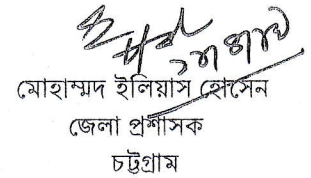 মোহাম্মদ ইলিয়াস হোসেন
জেলা প্রশাসক
চট্টগ্রাম